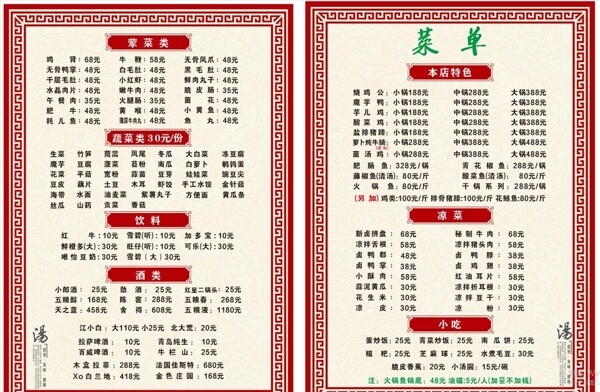 荤菜类
鸡 肾：68元 牛 鞭：58元 无骨凤爪：48元
无骨鸭掌：48元 白毛肚：48元 黑毛肚：48元
千层毛肚：48元 小红虾：48元 鲜肉丸子：48元
水晶肉片：48元 嫩牛肉：48元 脆皮肠：35元
午餐肉：35元 火腿肠：35元 菌 花：48元
肥 牛：48元 黄 喉：48元 小黄鱼：48元
耗儿鱼：48元 48元 鱼 丸：48元
蔬菜类30元/份
生菜 竹笋 茼蒿 凤尾 冬瓜 大白菜 冻豆腐
魔芋 豆腐 菠菜 苕粉 南瓜 白萝卜 鹌鹑蛋
花菜 平菇 宽粉 蒜苗 豆芽 娃娃菜 豌豆尖
豆皮 藕片 土豆 木耳 虾饺 手工水饺 金针菇
海带 水面 油麦菜 紫薯丸子 方便面 黄瓜条
丝瓜 山药 贡菜 香菇
饮料
红 牛：10元 雪碧(听)：10元 加多宝：10元
鲜橙多(大)：30元 旺仔(听)：10元 可乐(大)：30元
唯怡豆奶：30元 雪碧（大）30元
酒类
小郎酒： 25元 劲 酒： 25元 红星二锅头：25元
五粮醇：168元 陈 窖：288元 五粮春： 268元
天之蓝：458元 舍 得：608元 五粮液：1180元
江小白：大110元 小25元 北大荒：20元
拉萨啤酒： 10元 青岛纯生： 10元
百威啤酒： 10元 牛栏山： 25元
木盒拉菲： 288元 法国佳斯特：680元
Xo白兰地： 418元 金色庄园： 168元
湯
菜单
本店特色
烧鸡公：小锅188元 中锅288元 大锅388元
魔芋鸭：小锅188元 中锅288元 大锅388元
芋儿鸡：小锅188元 中锅288元 大锅388元
酸菜鸡：小锅188元 中锅288元 大锅388元
盐排猪蹄：小锅188元 中锅288元 大锅388元
萝卜炖牛腩：小锅288元 中锅388元 大锅488元
菌汤鸡：小锅288元 中锅388元 大锅488元
肥肠鱼：328元/锅 青花椒鱼：288元/锅
藤椒鱼(清汤)：80元/斤 酸菜鱼(清汤)：80元/斤
火锅鱼：80元/斤 干锅系列：288元/锅
(另加)鸡类:100元/斤 排骨猪蹄:100元/斤 花鲢鱼:80元/斤
凉菜
新卤拼盘： 68元 秘制牛肉： 68元
凉拌舌根： 58元 凉拌猪头肉： 58元
卤鸭郡： 48元 卤鸭脖： 38元
卤鸭掌： 38元 卤鸡翅： 38元
小酥肉： 58元 红油耳片： 58元
蒜泥黄瓜： 30元 凉拌折耳根： 30元
花生米： 30元 凉拌豆干： 30元
凉 皮： 30元 凉 粉： 30元
小吃
蛋炒饭：25元 青菜炒饭：25元 南瓜饼：25元
糍 粑：25元 芝麻球：25元 水煮毛豆：30元
脆皮香蕉：20元 小汤圆：15元/碗
注：火锅鱼锅底：48元 油碟:5元/人(加呈不加钱)
湯